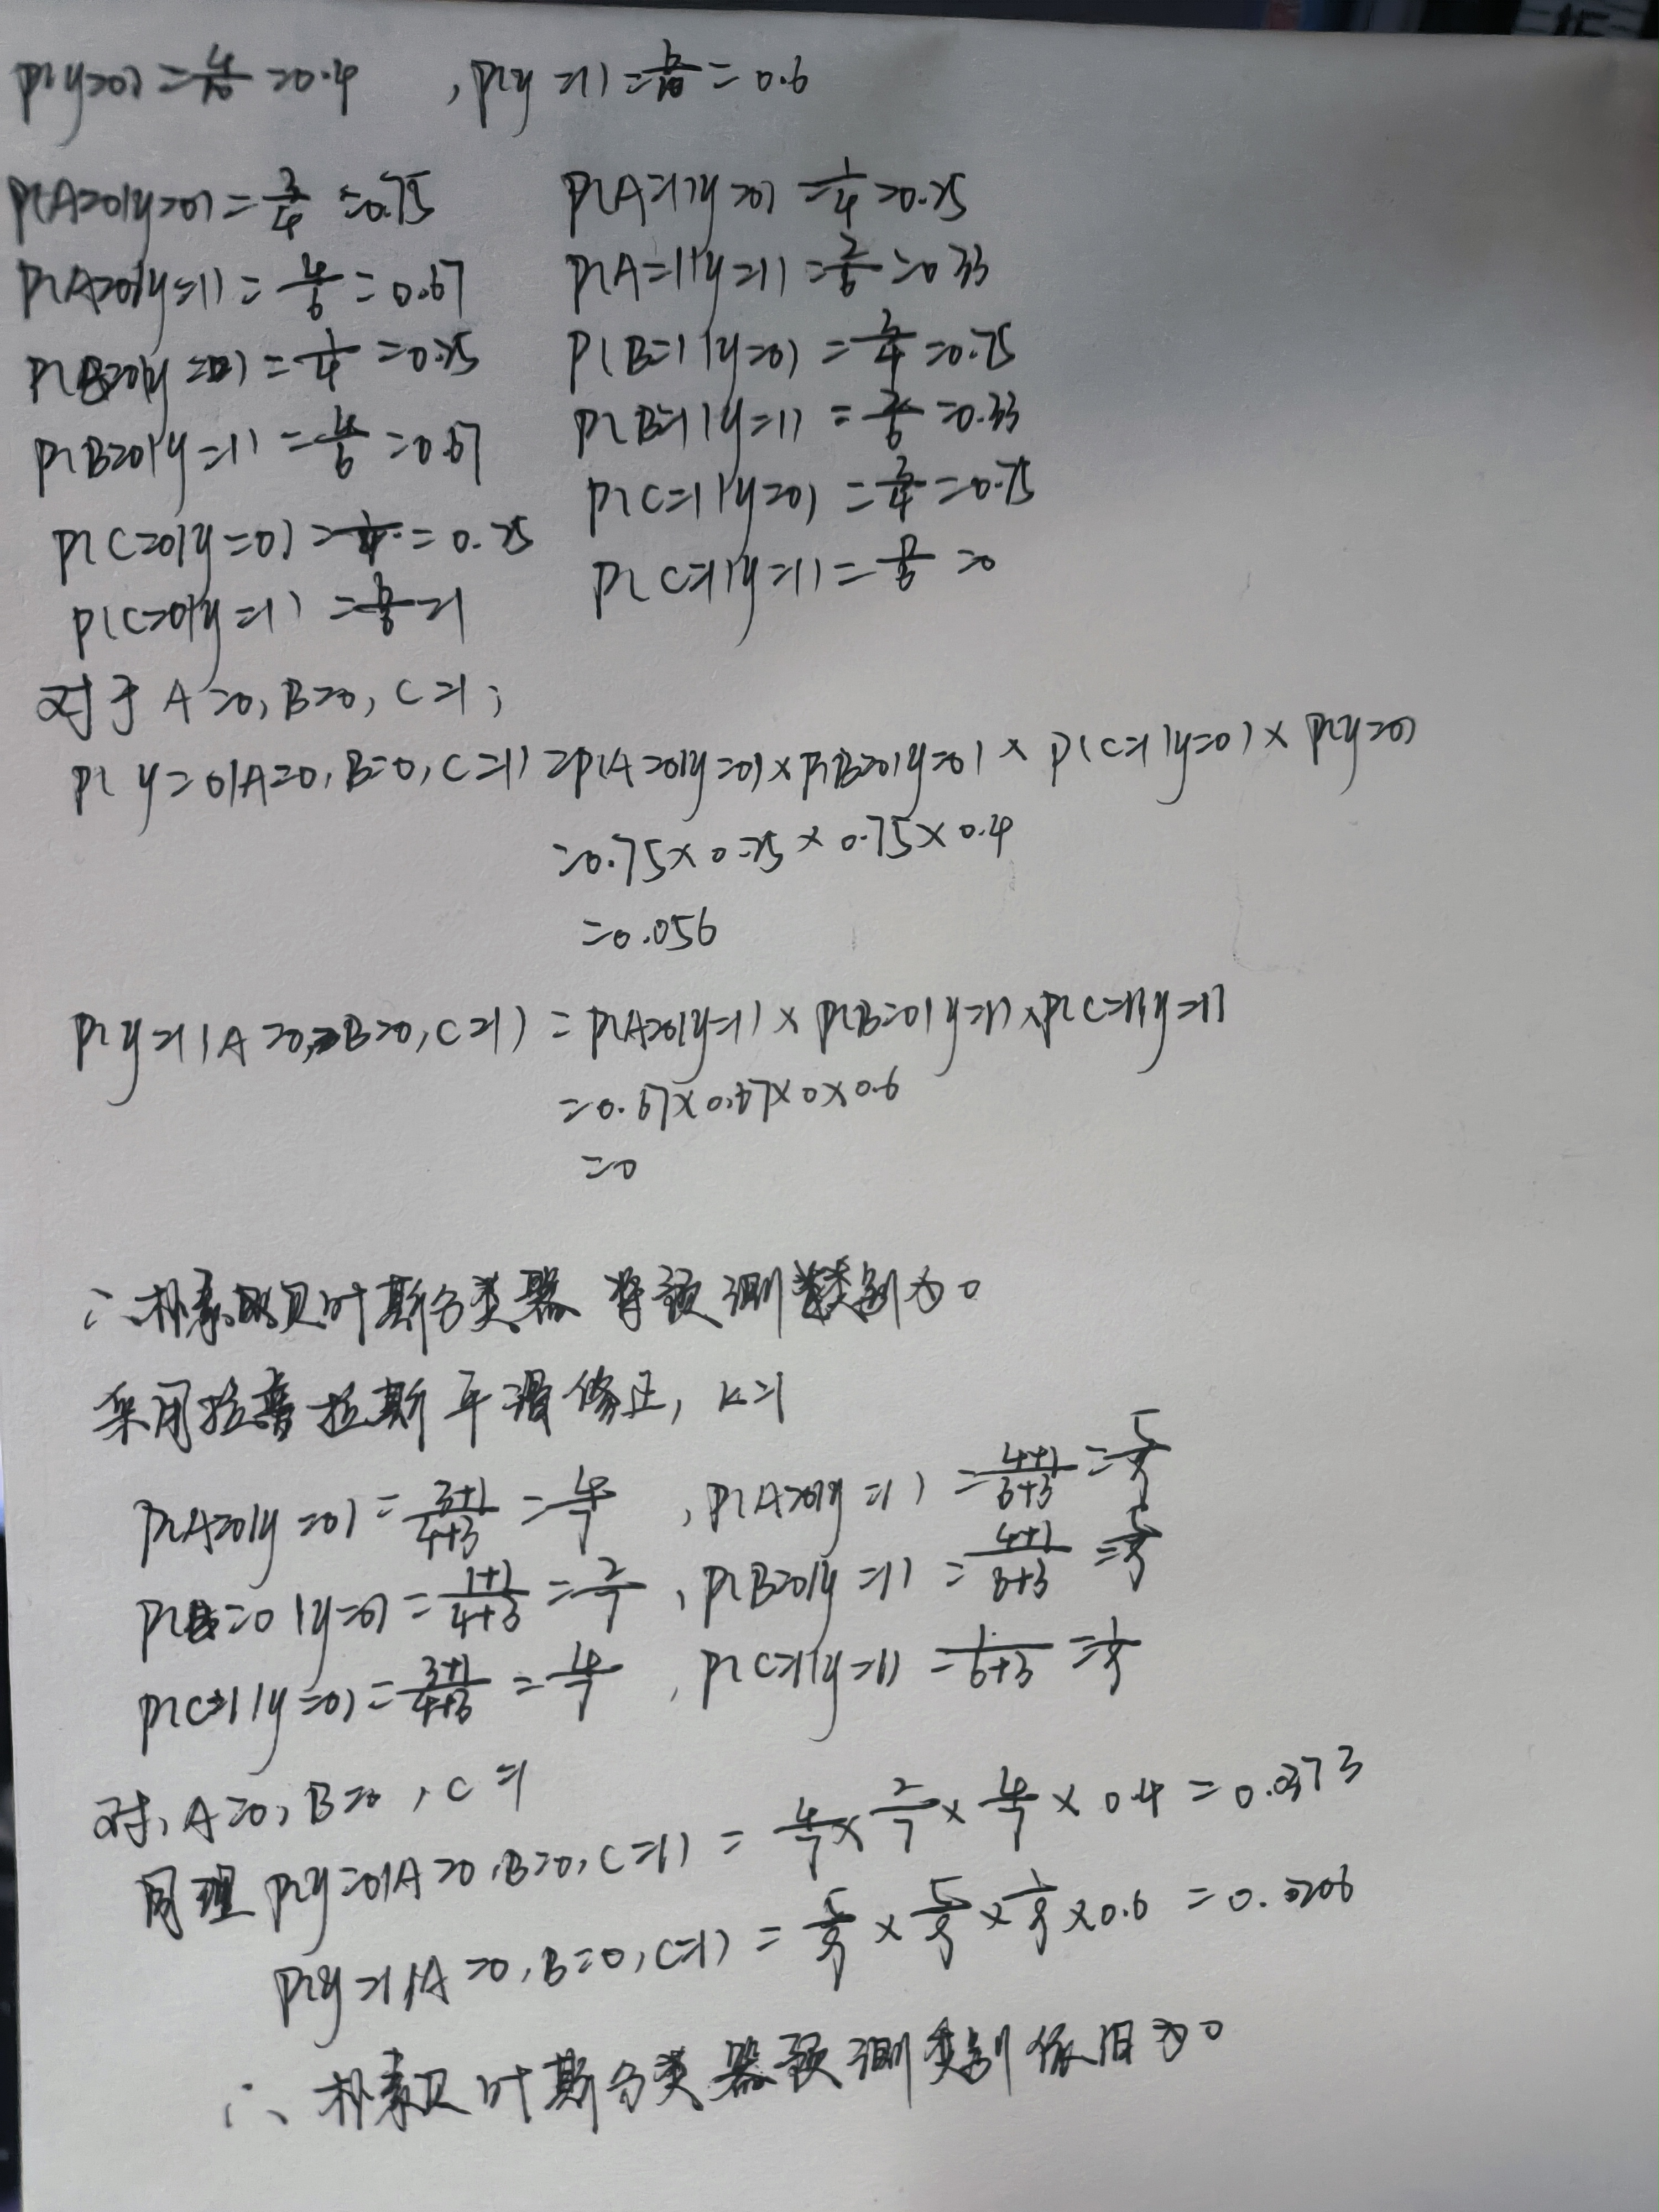 P(y=0) = 4/10 = 0.4 , P(y=1) = 6/10 = 0.6
P(A=0|y=0) = 3/4 = 0.75 P(A=1|y=0) = 1/4 = 0.25
P(A=0|y=1) = 4/6 = 0.67 P(A=1|y=1) = 2/6 = 0.33
P(B=0|y=0) = 1/4 = 0.25 P(B=1|y=0) = 3/4 = 0.75
P(B=0|y=1) = 4/6 = 0.67 P(B=1|y=1) = 2/6 = 0.33
P(C=0|y=0) = 1/4 = 0.25 P(C=1|y=0) = 3/4 = 0.75
P(C=0|y=1) = 6/6 = 1 P(C=1|y=1) = 0/6 = 0
对于 A=0, B=0, C=1;
P(y=0|A=0, B=0, C=1) = P(A=0|y=0) × P(B=0|y=0) × P(C=1|y=0) × P(y=0)
=0.75×0.25×0.75×0.4
=0.056
P(y=1|A=0, B=0, C=1) = P(A=0|y=1) × P(B=0|y=1) × P(C=1|y=1)
=0.67×0.67×0×0.6
=0
∴朴素贝叶斯分类器将预测类别为0
采用拉普拉斯平滑修正, k=1
P(A=0|y=0) = (3+1)/(4+3) = 4/7 , P(A=0|y=1) = (4+1)/(6+3) = 5/9
P(B=0|y=0) = (1+1)/(4+3) = 2/7 , P(B=0|y=1) = (4+1)/(6+3) = 5/9
P(C=1|y=0) = (3+1)/(4+3) = 4/7 , P(C=1|y=1) = 1/(6+3) = 1/9
对, A=0, B=0, C=1
同理 P(y=0|A=0, B=0, C=1) = 4/7 × 2/7 × 4/7 × 0.4 = 0.0373
P(y=1|A=0, B=0, C=1) = 5/9 × 5/9 × 1/9 × 0.6 = 0.0206
∴朴素贝叶斯分类器预测类别依旧为0